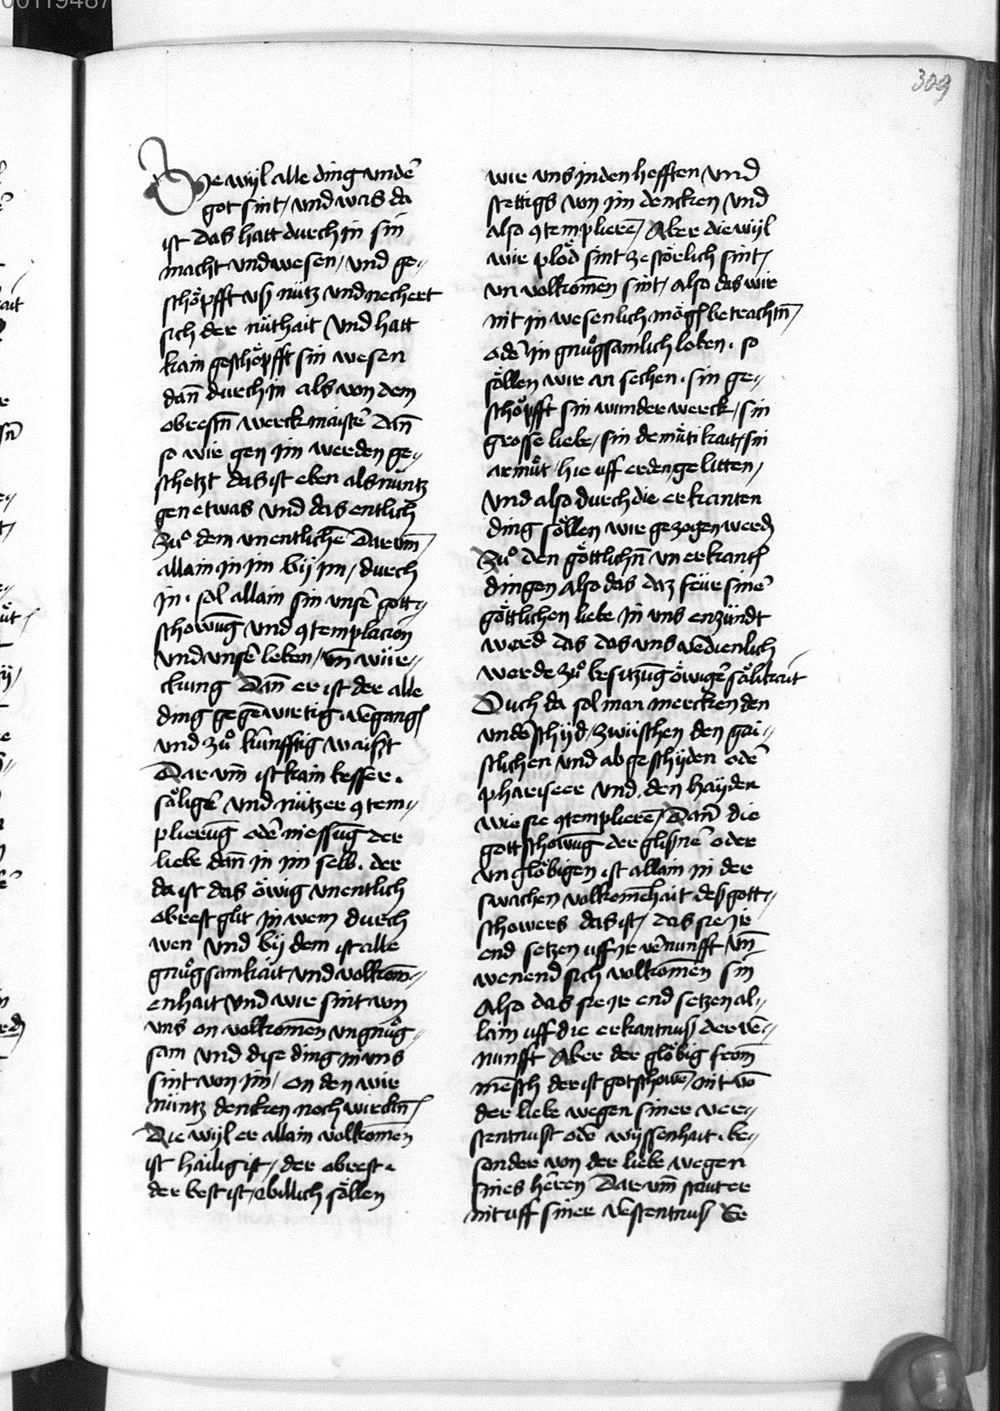 00119487
309
Dye wyl alle ding vnde᷒
got sint / vnd was da
ist das hatt durch in sin
macht vnd wesen / vnd ge⸗
schöpfft vsz nütz vnd nechert
sich der nüthait vnd hatt
kain geschöpfft sin wesen
dan̄ durch in als von dem
obresten̄ werckmaiste᷒ Dan̄
so wir gen im werden ge⸗
schetzt das ist eben als nüntz
gen etwas vnd das entlich
Zuͦ dem vnentlichē Darum̄
allain in im bij im / durch
in · sol allain sin vnse᷒ gott⸗
schowūg vnd ꝯtemplacion
vnd vnse᷒ leben / vn̄ wür⸗
ckung Dan̄ er ist der alle
ding gegēwirtig · v᷒gangē
vnd zuͦ künfftig waiszt
Darum̄ ist kain besser ·
säliger vnd nützer ꝯtem⸗
plierūg ode᷒ niessūg der
liebe dan̄ in im selb · der
da ist das öwig vnentlich
obrest guͦt in wem durch
wen vnd bij dem ist alle
gnuͦgsamkait vnd volkom̄⸗
enhait vnd wir sint von
vns on volkomen vngnuͦg⸗
sam vnd dise ding in vns
sint von im / on den wir
nüntz dencken noch wircken̄
Die wyl er allain volkomen
ist hailigist / der obrest ·
der best ist / billich söllen
wir vns in den hefften vnd
stettigs von im dencken vnd
also ꝯtemplierē / Aber die wyl
wir plöd sint zestörlich sint /
vn volkomē sint / also das wir
nit in wesenlich mögē betrachtn̄ /
ode᷒ in gnuͦgsamlich loben · so
söllen wir an sechen · sin ge⸗
schöpfft sin wunderwerck / sin
grosse liebe / sin demütikait / sin
armuͦt / hie uff erden gelitten /
vnd also durch die erkanten
ding söllen wir gezogen werdē
Zuͦ den göttlichn̄ vnerkantē
dingen also das daz feür sine᷒
göttlichen liebe in vns enzündt
werd das das vns v᷒dienlich
werde zuͦ besitzūg öwige᷒ sälikait
Ouch da sol man mercken den
vnde᷒schyd / zwüschen den gai⸗
stlichen vnd abgeschyden ode᷒
phariseer vnd · den hayden
wie sie ꝯtemplierē / Dan̄ die
gottschowūg der glisznē oder
vnglöbigen ist allain in der
swachen volkomēhait desz gott⸗
schowers das ist / das sie ir
end setzen uff ir v᷒nunfft vn̄
wenend sich volkomen sin
Also das sie ir end setzen al⸗
lain uff die erkantnusz der v᷒⸗
nunfft Aber der glöbig from̄
mēsch der ist gotschowē / nit vō
der liebe wegen siner ver⸗
stentnusz ode᷒ wyssenhait · be⸗
sonder von der liebe wegen
sines heren Darum̄ stauter
nit uff siner v᷒stentnusz Er